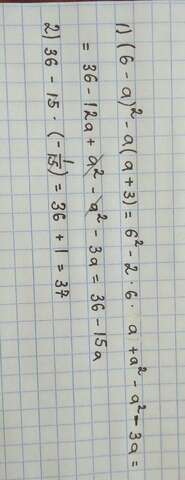 1) (6 - a)² - a(a + 3) = 6² - 2 · 6 · a + a² - a² - 3a =
= 36 - 12a + a² - a² - 3a = 36 - 15a
2) 36 - 15 · (- 1/15) = 36 + 1 = 37